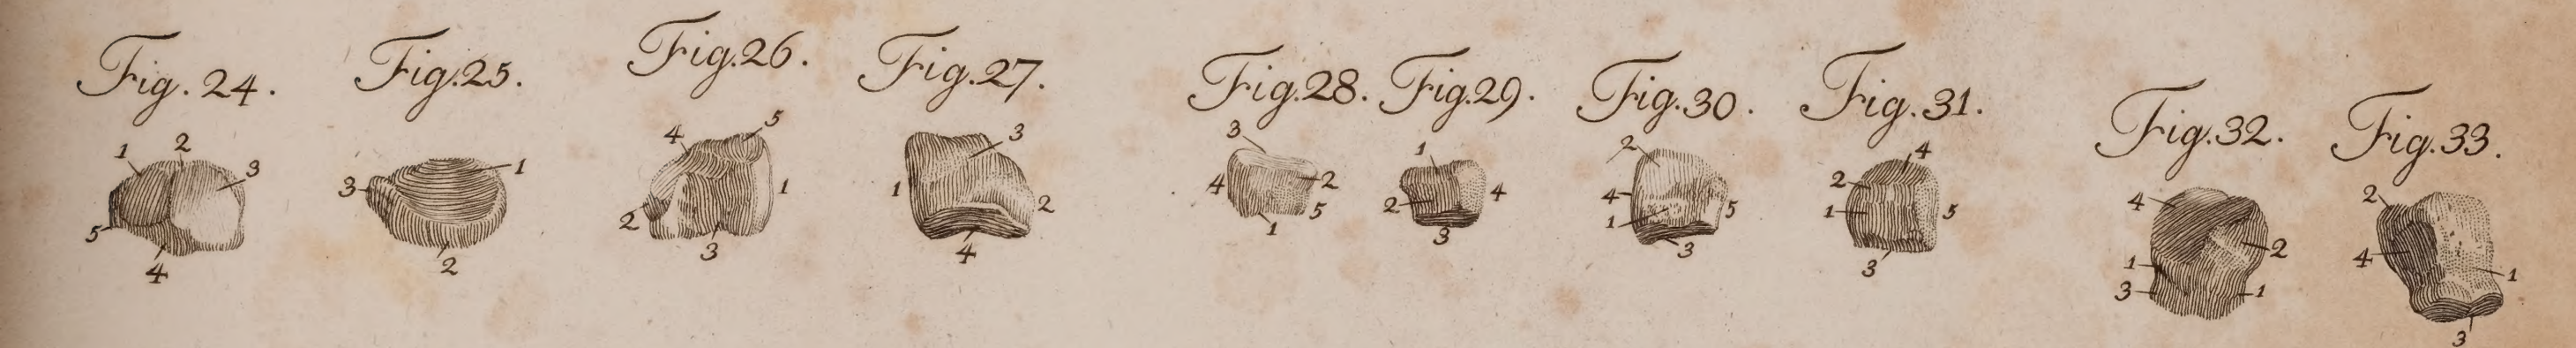 Fig. 24.
1 2 3 4 5
Fig. 25.
1 2 3
Fig. 26.
4 5 1 2 3
Fig. 27.
3 1 2 4
Fig. 28.
3 4 2 5 1
Fig. 29.
1 2 4 3
Fig. 30.
2 4 1 5 3
Fig. 31.
4 2 1 5 3
Fig. 32.
4 2 1 3 1
Fig. 33.
2 4 1 3